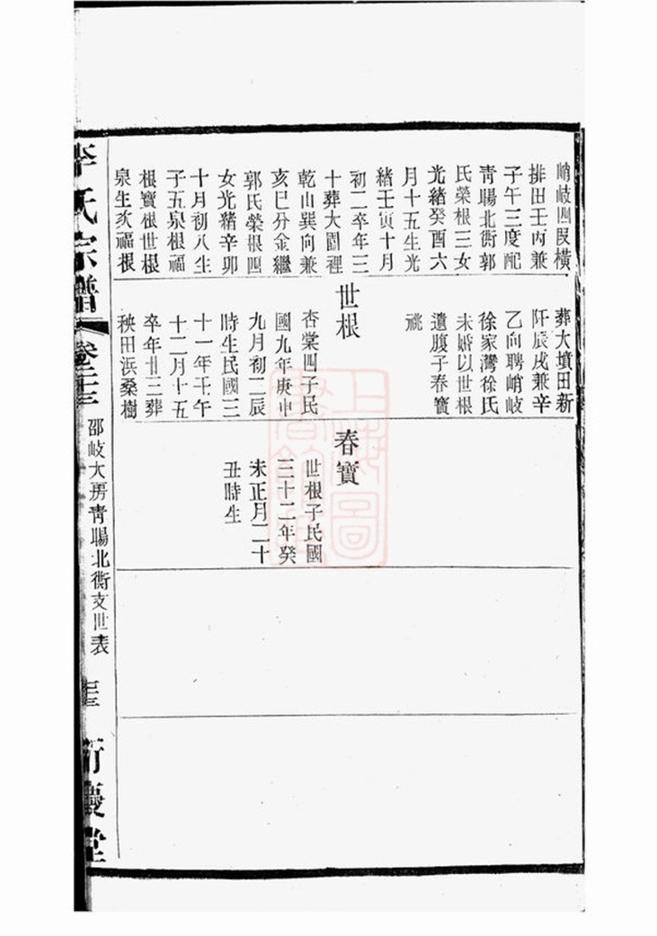 峭岐四叚橫
排田壬丙兼
子午三度配
靑暘北街郭
氏榮根三女
光緒癸酉六
月十五生光
緒壬寅十月
初二卒年三
十葬大園裡
乾山巽向兼
亥巳分金繼
郭氏榮根四
女光緖辛卯
十月初八生
子五泉根福
根寶根世根
泉生次福根
葬大墳田新
阡辰戌兼辛
乙向聘峭岐
徐家灣徐氏
未婚以世根
遺腹子春寳
祧
世根
杏棠四子民
國九年庚申
九月初二辰
時生民國三
十一年壬午
十二月十五
卒年廿三葬
秧田浜桑樹
春寳
世根子民國
三十二年癸
未正月二十
丑時生
李氏宗譜
卷二十三
邵岐大房靑暘北街支世表
堂